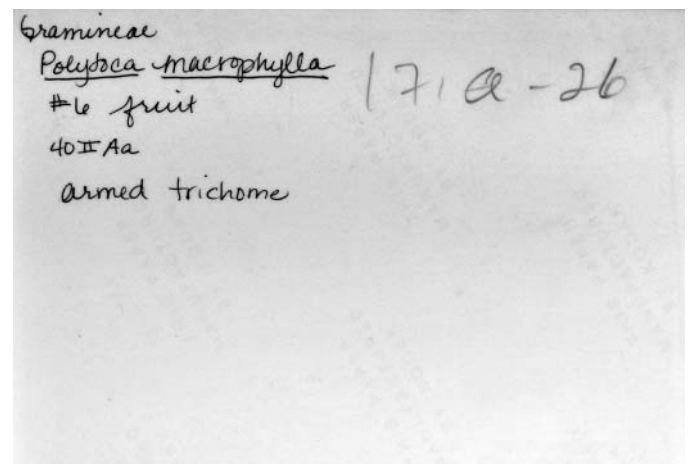 Gramineae
Polytoca macrophylla
#6 fruit
40 II Aa
armed trichome
171 a - 26